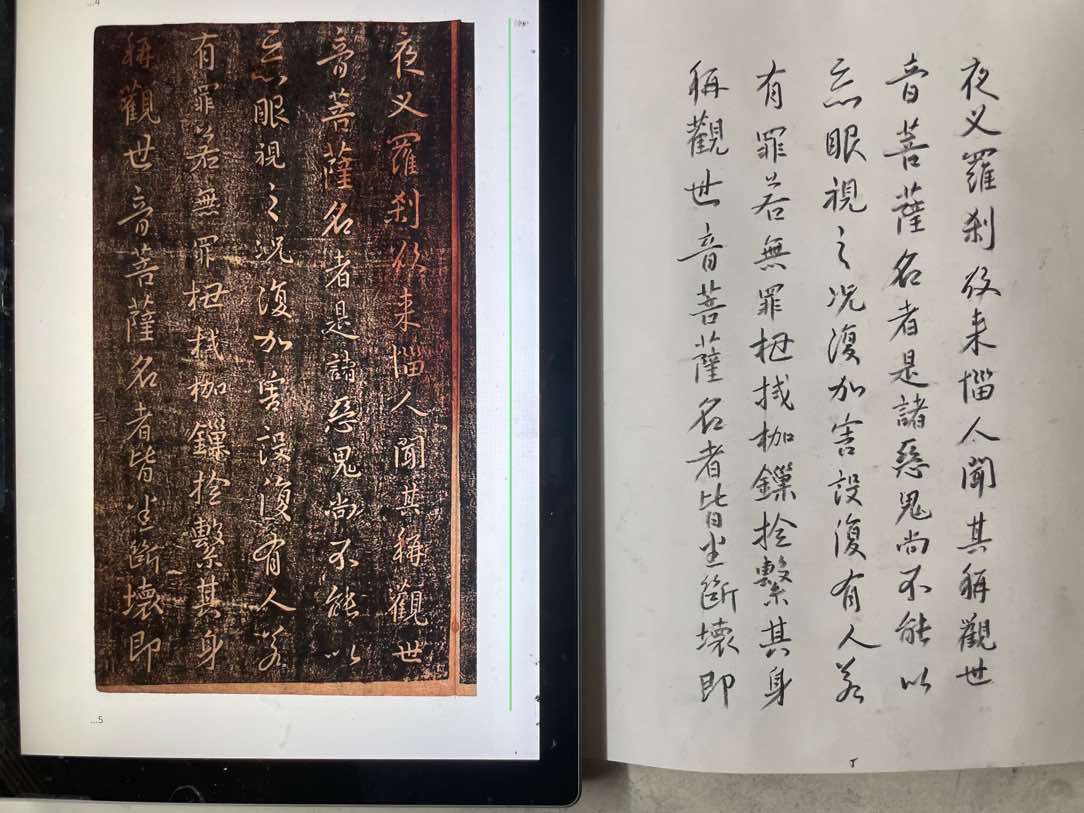 ...4
夜义羅刹欲来惱人聞其稱觀世
音菩薩名者是諸惡鬼尚不能以
惡眼視之况復加害設復有人若
有罪若無罪杻械枷鏁撿繫其身
稱觀世音菩薩名者皆坐斷壞即
...5
夜义羅刹欲来惱人聞其稱觀世
音菩薩名者是諸惡鬼尚不能以
惡眼視之况復加害設復有人若
有罪若無罪杻械枷鏁撿繫其身
稱觀世音菩薩名者皆坐斷壞即